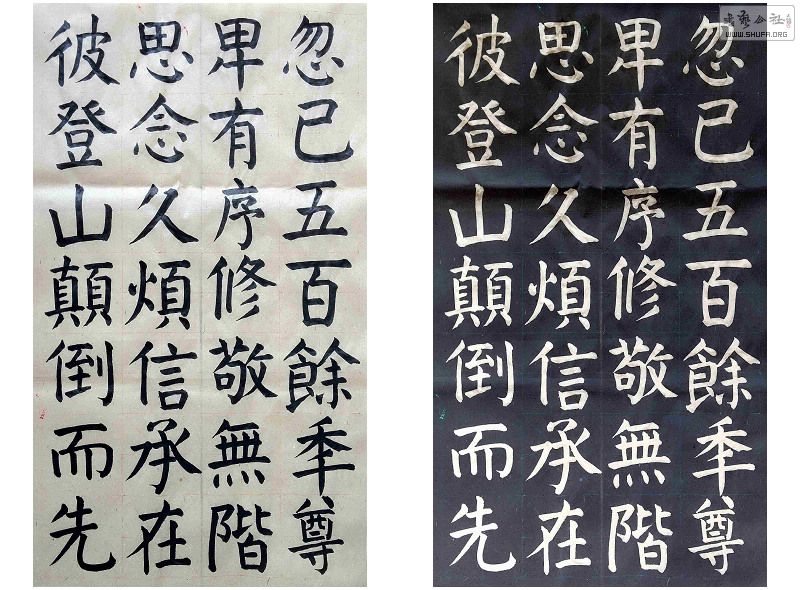 忽已五百餘秊尊
卑有序修敬無階
思念久煩信承在
彼登山顛倒而先
忽已五百餘秊尊
卑有序修敬無階
思念久煩信承在
彼登山顛倒而先
书艺公社
WWW.SHUFA.ORG